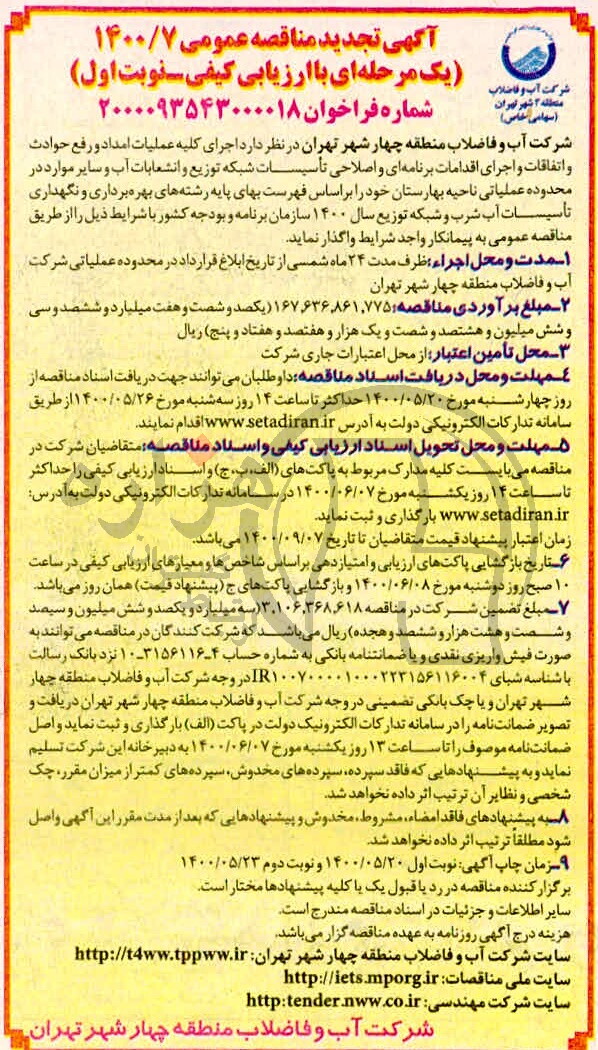 آگهی تجدید مناقصه عمومی ۱۴۰۰/۷
(یک مرحله‌ای با ارزیابی کیفی ـ نوبت اول)
شماره فراخوان ۲۰۰۰۰۹۳۵۴۳۰۰۰۰۱۸
شرکت آب و فاضلاب
منطقه ۴ شهر تهران
(سهامی خاص)
شرکت آب و فاضلاب منطقه چهار شهر تهران در نظر دارد اجرای کلیه عملیات امداد و رفع حوادث
و اتفاقات و اجرای اقدامات برنامه‌ای و اصلاحی تأسیسات شبکه توزیع و انشعابات آب و سایر موارد در
محدوده عملیاتی ناحیه بهارستان خود را براساس فهرست بهای پایه رشته‌های بهره‌برداری و نگهداری
تأسیسات آب شرب و شبکه توزیع سال ۱۴۰۰ سازمان برنامه و بودجه کشور با شرایط ذیل را از طریق
مناقصه عمومی به پیمانکار واجد شرایط واگذار نماید.
۱ـ مدت و محل اجراء: ظرف مدت ۲۴ ماه شمسی از تاریخ ابلاغ قرارداد در محدوده عملیاتی شرکت
آب و فاضلاب منطقه چهار شهر تهران
۲ـ مبلغ برآوردی مناقصه: ۱۶۷,۶۳۶,۸۶۱,۷۷۵ (یکصد و شصت و هفت میلیارد و ششصد و سی
و شش میلیون و هشتصد و شصت و یک هزار و هفتصد و هفتاد و پنج) ریال
۳ـ محل تأمین اعتبار: از محل اعتبارات جاری شرکت
۴ـ مهلت و محل دریافت اسناد مناقصه: داوطلبان می‌توانند جهت دریافت اسناد مناقصه از
روز چهارشنبه مورخ ۱۴۰۰/۰۵/۲۰ حداکثر تا ساعت ۱۴ روز سه‌شنبه مورخ ۱۴۰۰/۰۵/۲۶ از طریق
سامانه تدارکات الکترونیکی دولت به آدرس www.setadiran.ir اقدام نمایند.
۵ـ مهلت و محل تحویل اسناد ارزیابی کیفی و اسناد مناقصه: متقاضیان شرکت در
مناقصه می‌بایست کلیه مدارک مربوط به پاکت‌های (الف، ب، ج) و اسناد ارزیابی کیفی را حداکثر
تا ساعت ۱۴ روز یکشنبه مورخ ۱۴۰۰/۰۶/۰۷ در سامانه تدارکات الکترونیکی دولت به آدرس:
www.setadiran.ir بارگذاری و ثبت نماید.
زمان اعتبار پیشنهاد قیمت متقاضیان تا تاریخ ۱۴۰۰/۰۹/۰۷ می‌باشد.
۶ـ تاریخ بازگشایی پاکت‌های ارزیابی و امتیازدهی براساس شاخص‌ها و معیارهای ارزیابی کیفی در ساعت
۱۰ صبح روز دوشنبه مورخ ۱۴۰۰/۰۶/۰۸ و بازگشایی پاکت‌های ج (پیشنهاد قیمت) همان روز می‌باشد.
۷ـ مبلغ تضمین شرکت در مناقصه ۳,۱۰۶,۳۶۸,۶۱۸ (سه میلیارد و یکصد و شش میلیون و سیصد
و شصت و هشت هزار و ششصد و هجده) ریال می‌باشد که شرکت کنندگان در مناقصه می‌توانند به
صورت فیش واریزی نقدی و یا ضمانتنامه بانکی به شماره حساب ۴ـ۳۱۵۶۱۱۶ـ۱۰ نزد بانک رسالت
با شناسه شبای IR۱۰۰۷۰۰۰۰۱۰۰۰۲۲۳۱۵۶۱۱۶۰۰۴ در وجه شرکت آب و فاضلاب منطقه چهار
شهر تهران و یا چک بانکی تضمینی در وجه شرکت آب و فاضلاب منطقه چهار شهر تهران دریافت و
تصویر ضمانت‌نامه را در سامانه تدارکات الکترونیک دولت در پاکت (الف) بارگذاری و ثبت نماید و اصل
ضمانت‌نامه موصوف را تا ساعت ۱۳ روز یکشنبه مورخ ۱۴۰۰/۰۶/۰۷ به دبیرخانه این شرکت تسلیم
نماید و به پیشنهادهایی که فاقد سپرده، سپرده‌های مخدوش، سپرده‌های کمتر از میزان مقرر، چک
شخصی و نظایر آن ترتیب اثر داده نخواهد شد.
۸ـ به پیشنهادهای فاقد امضاء، مشروط، مخدوش و پیشنهادهایی که بعد از مدت مقرر این آگهی واصل
شود مطلقاً ترتیب اثر داده نخواهد شد.
۹ـ زمان چاپ آگهی: نوبت اول ۱۴۰۰/۰۵/۲۰ و نوبت دوم ۱۴۰۰/۰۵/۲۳
برگزارکننده مناقصه در رد یا قبول یک یا کلیه پیشنهادها مختار است.
سایر اطلاعات و جزئیات در اسناد مناقصه مندرج است.
هزینه درج آگهی روزنامه به عهده مناقصه گزار می‌باشد.
سایت شرکت آب و فاضلاب منطقه چهار شهر تهران: http://t4ww.tppww.ir
سایت ملی مناقصات: http://iets.mporg.ir
سایت شرکت مهندسی: http:tender.nww.co.ir
شرکت آب و فاضلاب منطقه چهار شهر تهران